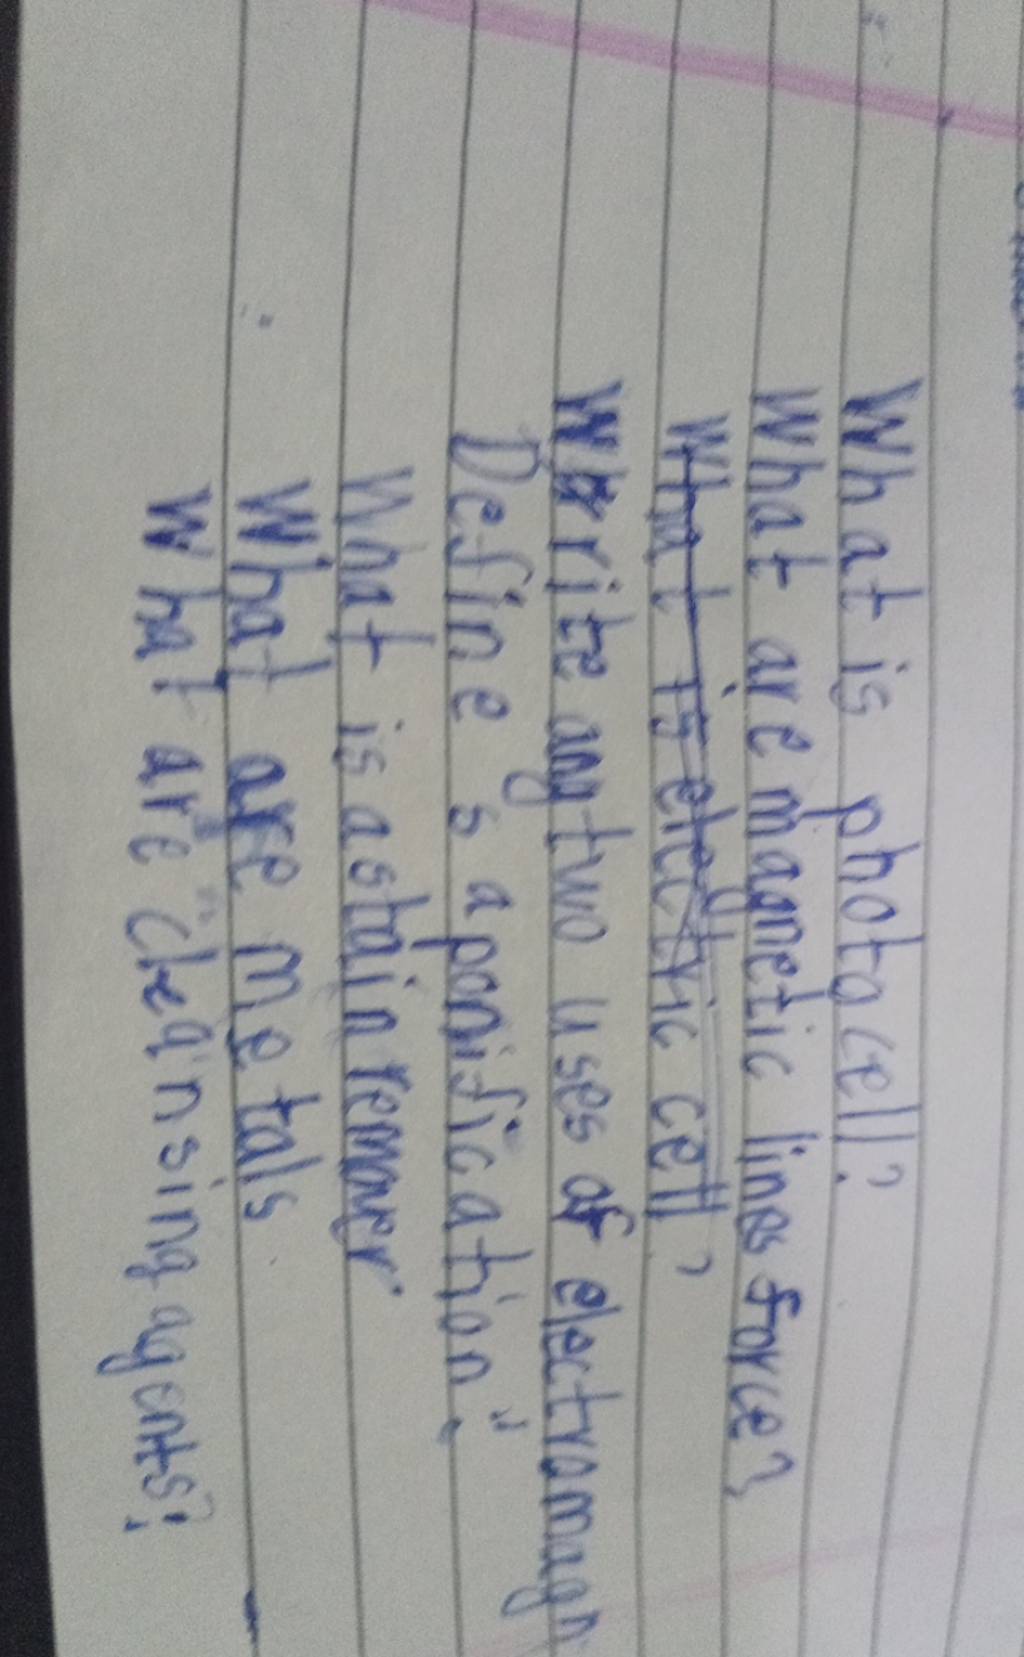 What is photocell?
What are magnetic lines force?
What is electric cell?
Write any two uses of electromagn
Define saponification.
What is a stain remover
What are metals
What are cleansing agents?